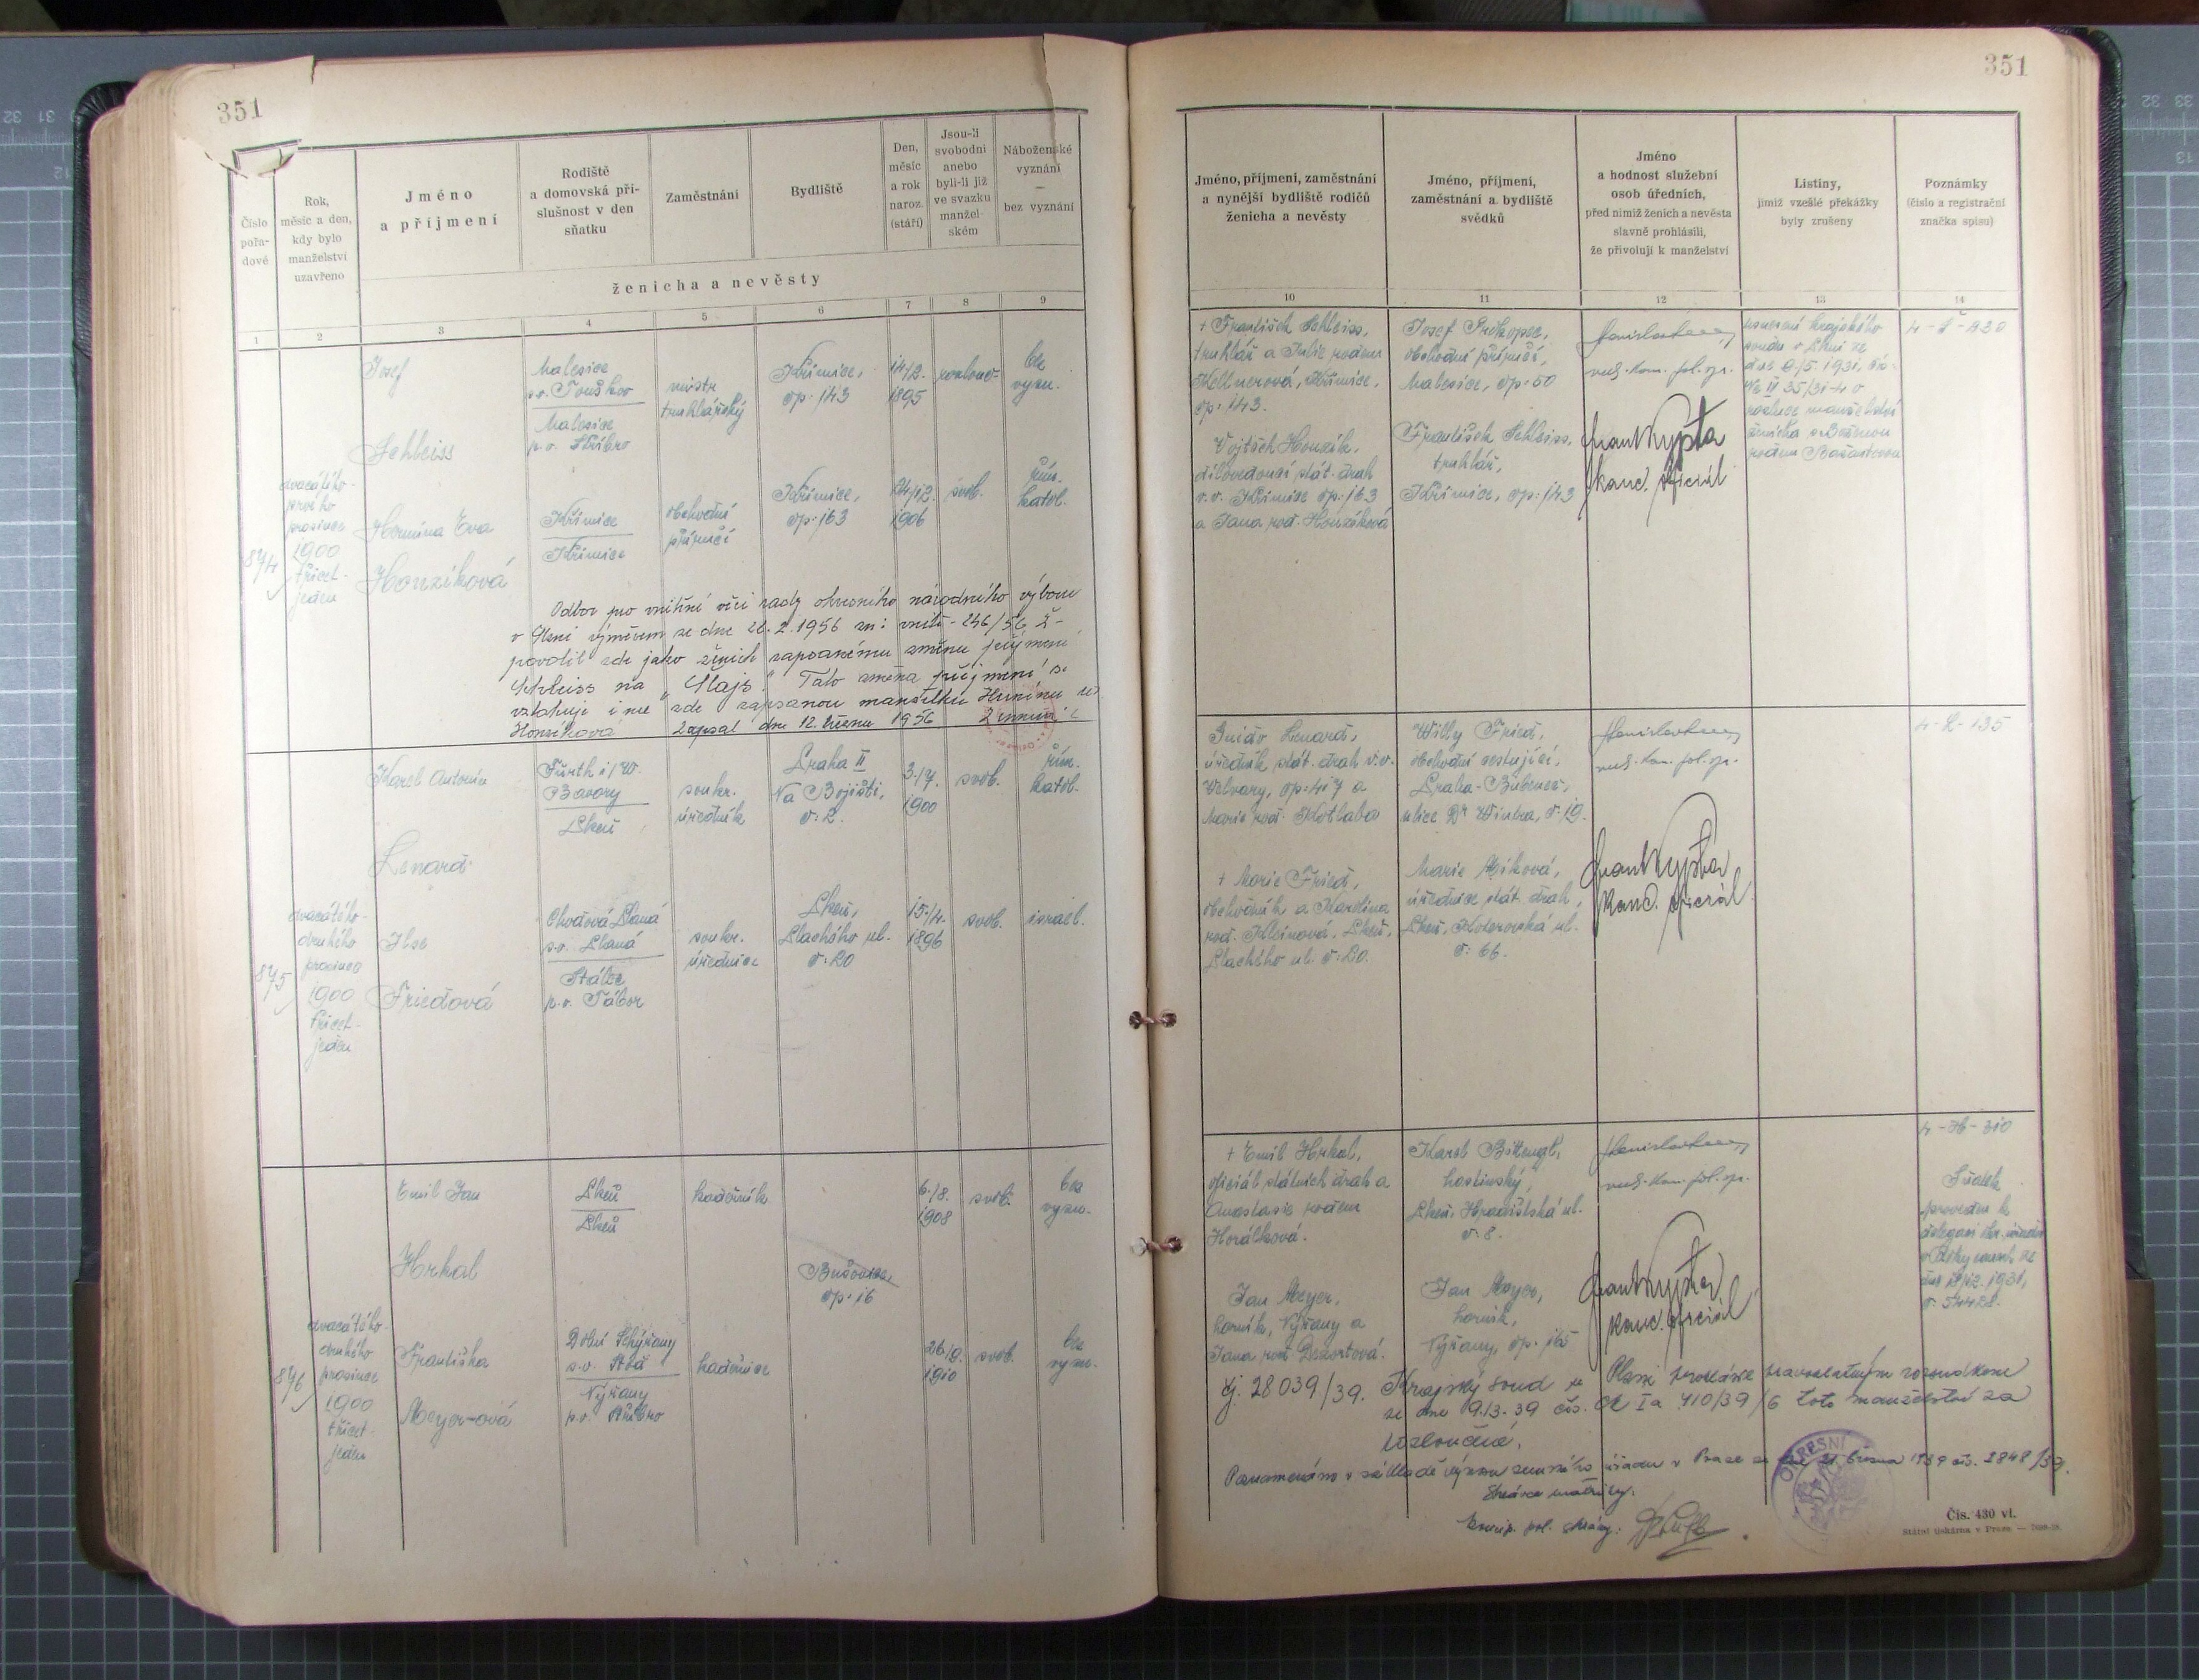 351
351
Číslo pořa-dové
Rok, měsíc a den, kdy bylo manželství uzavřeno
Jméno
a příjmení
Rodiště
a domovská pří-
slušnost v den
sňatku
Zaměstnání
Bydliště
Den,
měsíc
a rok
naroz.
(stáří)
Jsou-li
svobodni
anebo
byli-li již
ve svazku
manžel-
ském
Náboženské
vyznání
—
bez vyznání
ženicha a nevěsty
1 2 3 4 5 6 7 8 9
Jméno, příjmení, zaměstnání
a nynější bydliště rodičů
ženicha a nevěsty
Jméno, příjmení,
zaměstnání a bydliště
svědků
Jméno
a hodnost služební
osob úředních,
před nimiž ženich a nevěsta
slavně prohlásili,
že přivolují k manželství
Listiny,
jimiž vzešlé překážky
byly zrušeny
Poznámky
(číslo a registrační
značka spisu)
10 11 12 13 14
874
dvacátého-
prvého
prosince
1900
třicet-
jeden
Josef
Schleiss
Malesice
s.o. Touškov
Malesice
p.o. Stříbro
mistr
truhlářský
Křimice,
čp. 143
14/2.
1895
rozlouč.
bez
vyzn.
Hermína Eva
Honzíková
Křimice
Křimice
obchodní
příručí
Křimice,
čp. 163
24/12.
1906
svob.
řím.
katol.
Odbor pro vnitřní věci rady okresního národního výboru
v Plzni výměrem ze dne 22.2.1956 zn: vnitř-246/56 Ž-
povolil zde jako ženich zapsanému změnu příjmení
Schleiss na „Šlajs." Tato změna příjmení se
vztahuje i na zde zapsanou manželku Hermínu r.
Honzíková Zapsal dne 12. března 1956
† František Schleiss,
truhlář a Julie rodem
Kellnerová, Křimice,
čp. 143.
Vojtěch Honzík,
dílovedoucí stát. drah
v.v. Křimice čp. 163
a Jana roz. Honzíková
Josef Prokopec,
obchodní příručí,
Malesice, čp. 50
František Schleiss,
truhlář,
Křimice, čp. 143
vrch. kom. pol. spr.
kanc. oficiál
usnesení krajského
soudu v Plzni ze
dne
rozluce manželství
ženicha s
rodem
4-Š-230
875
dvacátého-
druhého
prosince
1900
třicet-
jeden
Karel Antonín
Lenard
Fürth i/W.
Bavory
Plzeň
soukr.
úředník
Praha II
Na Bojišti,
č. 2.
3./7.
1900
svob.
řím.
katol.
Ilse
Friedová
Chodová Planá
s.o. Planá
Stálec
p.o. Tábor
soukr.
úřednice
Plzeň,
Plachého ul.
č. 20
15./4.
1896
svob.
israel.
Guido Lenard,
úředník stát. drah v.v.
Velvary, čp. 417 a
Marie roz. Kotlaba
† Moric Fried,
obchodník a Karolina
roz. Kleinová, Plzeň,
Plachého ul. č. 20.
Willy Fried,
obchodní cestující,
Praha-Bubeneč,
ulice Dr Wintra, č. 19.
Marie Míková,
úřednice stát. drah,
Plzeň, Koterovská ul.
č. 66.
vrch. kom. pol. spr.
kanc. oficiál
4-L-135
876
dvacátého-
druhého
prosince
1900
třicet-
jeden
Emil Jan
Hrkal
Plzeň
Plzeň
kadeřník
čp. 16
6./8.
1908
svob.
bez
vyzn.
Františka
Meyer-ová
Dolní Sekyřany
s.o. Stod
Nýřany
p.o. Stříbro
kadeřnice
26./9.
1910
svob.
bez
vyzn.
† Emil Hrkal,
oficiál státních drah a
Anastasie rodem
Horálková.
Jan Meyer,
horník, Nýřany a
Jana roz. Dezortová.
Karel Bittengl,
hostinský,
Plzeň, Hradištská ul.
č. 8.
Jan Meyer,
horník,
Nýřany, čp. 165
vrch. kom. pol. spr.
kanc. oficiál
4-H-310
Sňatek
proveden k
delegaci okr. úřadu
1931,
čj. 28039/39. Krajský soud v Plzni prohlásil pravoplatným rozsudkem
ze dne 9.13.39 čís. Ck Ia 710/39/6 toto manželství za
rozloučené.
Poznamenáno v základě výnosu zemského úřadu v Praze ze dne 21. března 1939 čís. 2848/39.
Správce matriky:
OKRESNÍ
Čís. 430 vl.
Státní tiskárna v Praze